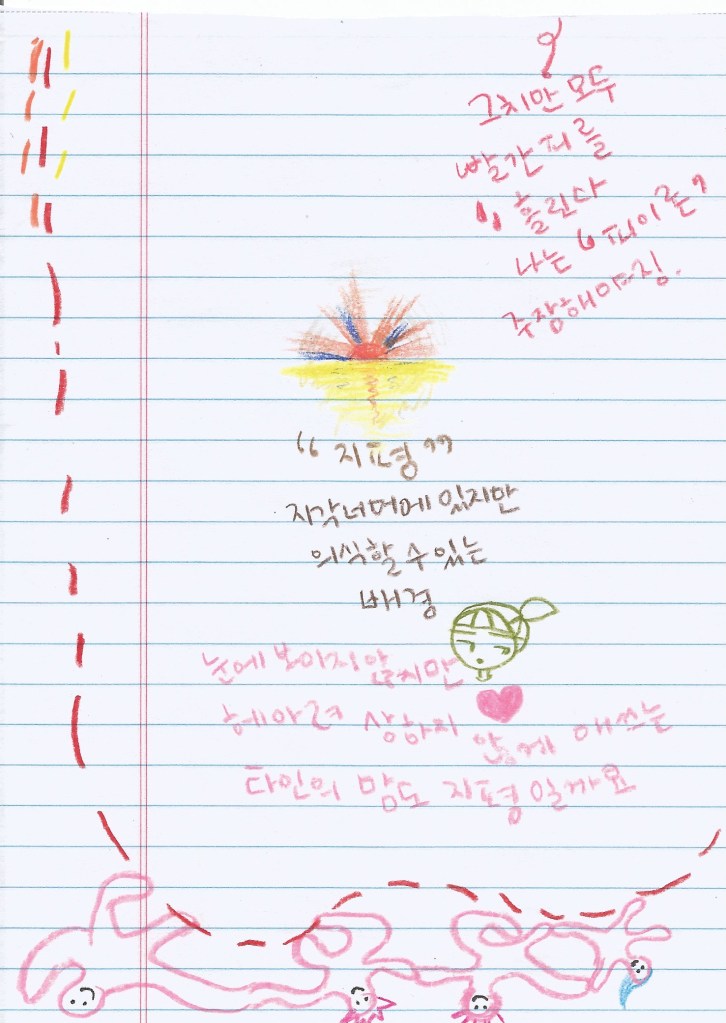 그치만 모두
빨간피를
흘린다
나는 피이론?
주장해야징.
“지평”
지각너머에 있지만
의식할 수 있는
배경
눈에 보이지않지만
헤아려 상하지 않게 애쓰는
타인의 맘도 지평일까요